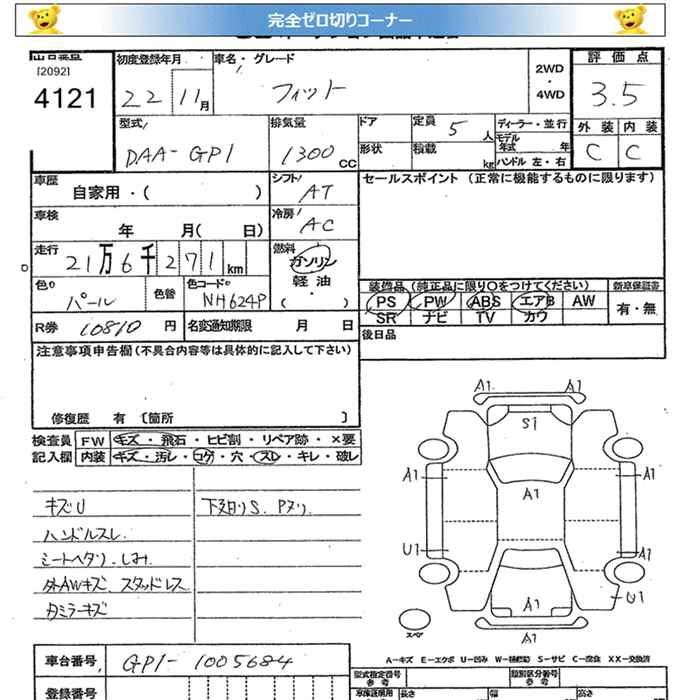 完全ゼロ切りコーナー
[2092]
4121
初度登録年月 22 11月
車名・グレード フィット
2WD・4WD
評価点 3.5
外装 C 内装 C
型式 DAA-GP1
排気量 1300 CC
ドア 形状
定員 5 人
積載 kg
ディーラー・並行
モデル年式 年
ハンドル 左・右
車歴 自家用・( )
シフト AT
セールスポイント (正常に機能するものに限ります)
車検 年 月( 日)
冷房 AC
走行 21万6千271km
燃料 ガソリン 軽油 ( ・ )
色 パール 色替 色コード NH624P
装備品 (純正品に限り○をつけてください) 新車保証書
PS PW ABS エアB AW 有・無
SR ナビ TV カワ
R券 10810 円 名変通知期限 月 日
後日品
注意事項申告欄 (不具合内容等は具体的に記入して下さい)
修復歴 有 〔箇所 〕
検査員 FW キズ・飛石・ヒビ割・リペア跡・×要
記入欄 内装 キズ・汚レ・コゲ・穴・スレ・キレ・破レ
キズU 下廻りS. Pヌリ.
ハンドルスレ
シートヘタリ・しみ
外AWキズ スタッドレス
カミラーキズ
A1 A1
S1
A1 A1 A1
U1 A1
A1 U1
A1
スペア
A-キズ E-エクボ U-凹み W-補修跡 S-サビ C-腐食 XX-交換済
車台番号 GP1-1005684
登録番号
型式指定番号 参考 類別区分番号 参考
長さ 幅 高さ